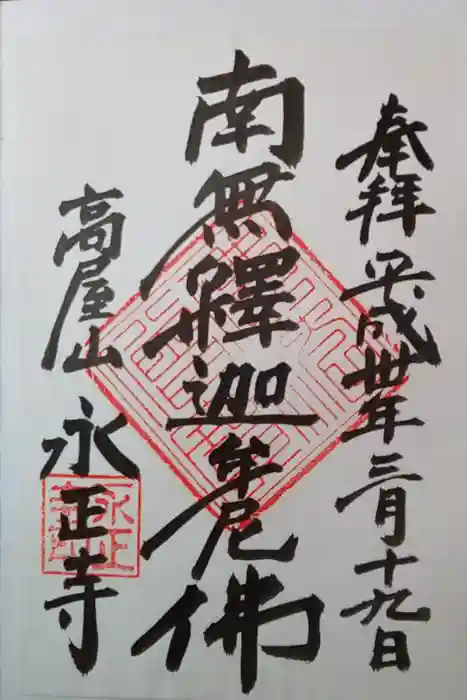 奉拝 平成卅一年三月十九日
南無釋迦牟尼佛
高屋山 永正寺